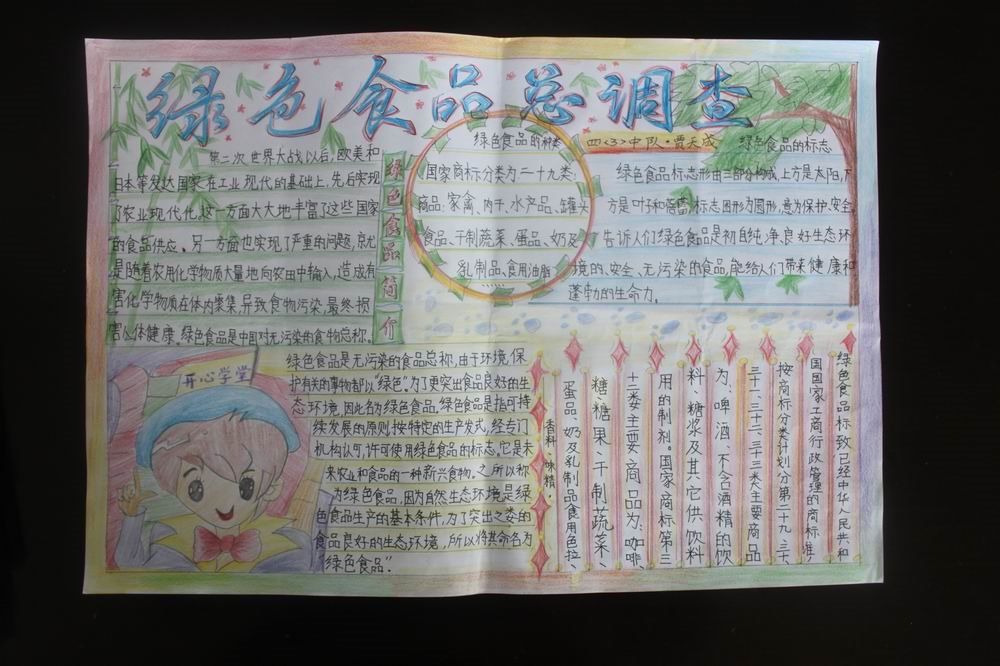 绿色食品总调查
第二次世界大战以后,欧美和
日本等发达国家在工业现代的基础上,先后实现
了农业现代化。这一方面大大地丰富了这些国家
的食品供应。另一方面也实现了严重的问题,就
是随着农用化学物质大量地向农田中输入,造成有
害化学物质在体内聚集,导致食物污染,最终损
害人体健康。绿色食品是中国对无污染的食物总称。
绿色食品简介
绿色食品的种类
国家商标分类为二十九类:
商品:家禽、肉干、水产品、罐头
食品、干制蔬菜、蛋品、奶及
乳制品、食用油脂
四<3>中队·贾天成
绿色食品的标志
绿色食品标志形由三部分构成,上方是太阳,下
方是叶子和蓓蕾,标志图形为圆形,意为保护、安全,
告诉人们绿色食品是初自纯、净、良好生态环
境的、安全、无污染的食品,能给人们带来健康和
蓬勃的生命力。
开心学堂
绿色食品是无污染的食品总称,由于环境,保
护有关的事物都以“绿色”,为了更突出食品良好的生
态环境,因此名为绿色食品。绿色食品是指可持
续发展的原则,按特定的生产发式,经专门
机构认可,许可使用绿色食品的标志,它是未
来农业和食品的一种新兴食物。之所以称
为绿色食品,因为自然生态环境是绿
色食品生产的基本条件,为了突出之类的
食品良好的生态环境,所以将其命名为
“绿色食品”.
绿色食品标致已经中华人民共和
国国家工商行政管理的商标准,
按商标分类计划分第二十九、三十、
三十一、三十二、三十三类主要商品
为:啤酒、不含酒精的饮
料、糖浆及其它供饮料
用的制剂。国家商标第三
十二类主要商品为:咖啡、
糖、糖果、干制蔬菜、
蛋品、奶及乳制品食用色拉、
香料、味精。